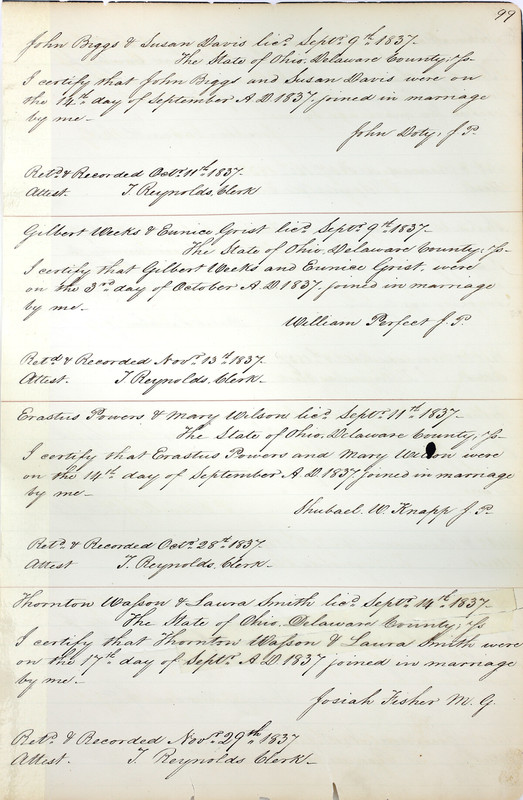 99
John Biggs & Susan Davis licd Septr 9th 1837-
The State of Ohio, Delaware County, Ss-
I certify that John Biggs and Susan Davis were on
the 14th day of September A.D. 1837. joined in marriage
by me-
John Doty, J P.
Retd & Recorded Octr 11th 1837.
Attest. T Reynolds, Clerk
Gilbert Weeks & Eunice Grist licd Septr 9th 1837-
The State of Ohio, Delaware County, Ss-
I certify that Gilbert Weeks and Eunice Grist, were
on the 3rd day of October A D 1837. joined in marriage
by me-
William Perfect J. P.
Retd & Recorded Novr 13th 1837.
Attest. T Reynolds, Clerk-
Erastus Powers & Mary Wilson licd Septr 11th 1837-
The State of Ohio, Delaware County, Ss-
I certify that Erastus Powers and Mary were
on the 14th day of September A D 1837 joined in marriage
by me-
Shubael W. Knapp J P-
Retd & Recorded Octr 28th 1837.
Attest T. Reynolds, Clerk-
Thornton Wasson & Laura Smith licd Septr 14th 1837-
The State of Ohio, Delaware County, Ss
I certify that Thornton Wasson & Laura Smith were
on the 17th day of Septr A D 1837 joined in marriage
by me-
Josiah Fisher M. G.
Retd & Recorded Novr 29th 1837
Attest. T. Reynolds Clerk-